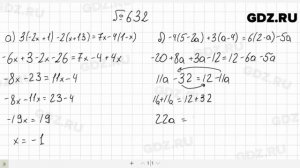 GDZ.RU
№ 632
а) 3(-2x+1)-2(x+13)=7x-4(1-x)
-6x+3-2x-26=7x-4+4x
-8x-23=11x-4
-8x-11x=23-4
-19x=19
x=-1
б) -4(5-2a)+3(a-4)=6(2-a)-5a
-20+8a+3a-12=12-6a-5a
11a-32=12-11a
11a+11a=12+32
22a=
GDZ.RU